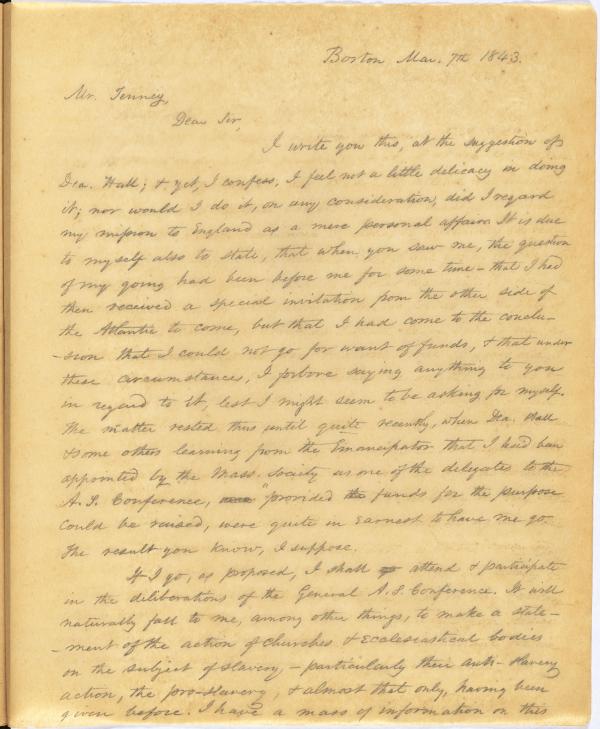 Boston Mar. 7th 1843.
Mr. Tenney,
Dear Sir,
I write you this, at the suggestion of
Dea. Hall; & yet, I confess, I feel not a little delicacy in doing
it; nor would I do it, on any consideration, did I regard
my mission to England as a mere personal affair. It is due
to myself also to state, that when you saw me, the question
of my going had been before me for some time - that I had
then received a special invitation from the other side of
the Atlantic to come, but that I had come to the conclu-
-sion that I could not go for want of funds, & that under
these circumstances, I forbore saying anything to you
in regard to it, lest I might seem to be asking for myself.
The matter rested thus until quite recently, when Dea. Hall
& some others learning from the Emancipator that I had been
appointed by the Mass. Society as one of the delegates to the
A. S. Conference, "provided the funds for the purpose
could be raised, were quite in earnest to have me go.
The result you know, I suppose.
If I go, as proposed, I shall attend & participate
in the deliberations of the General A. S. Conference. It will
naturally fall to me, among other things, to make a state-
-ment of the action of churches & ecclesiastical bodies
on the subject of slavery - particularly their anti-slavery
action, the pro-slavery, & almost that only, having been
given before. I have a mass of information on this